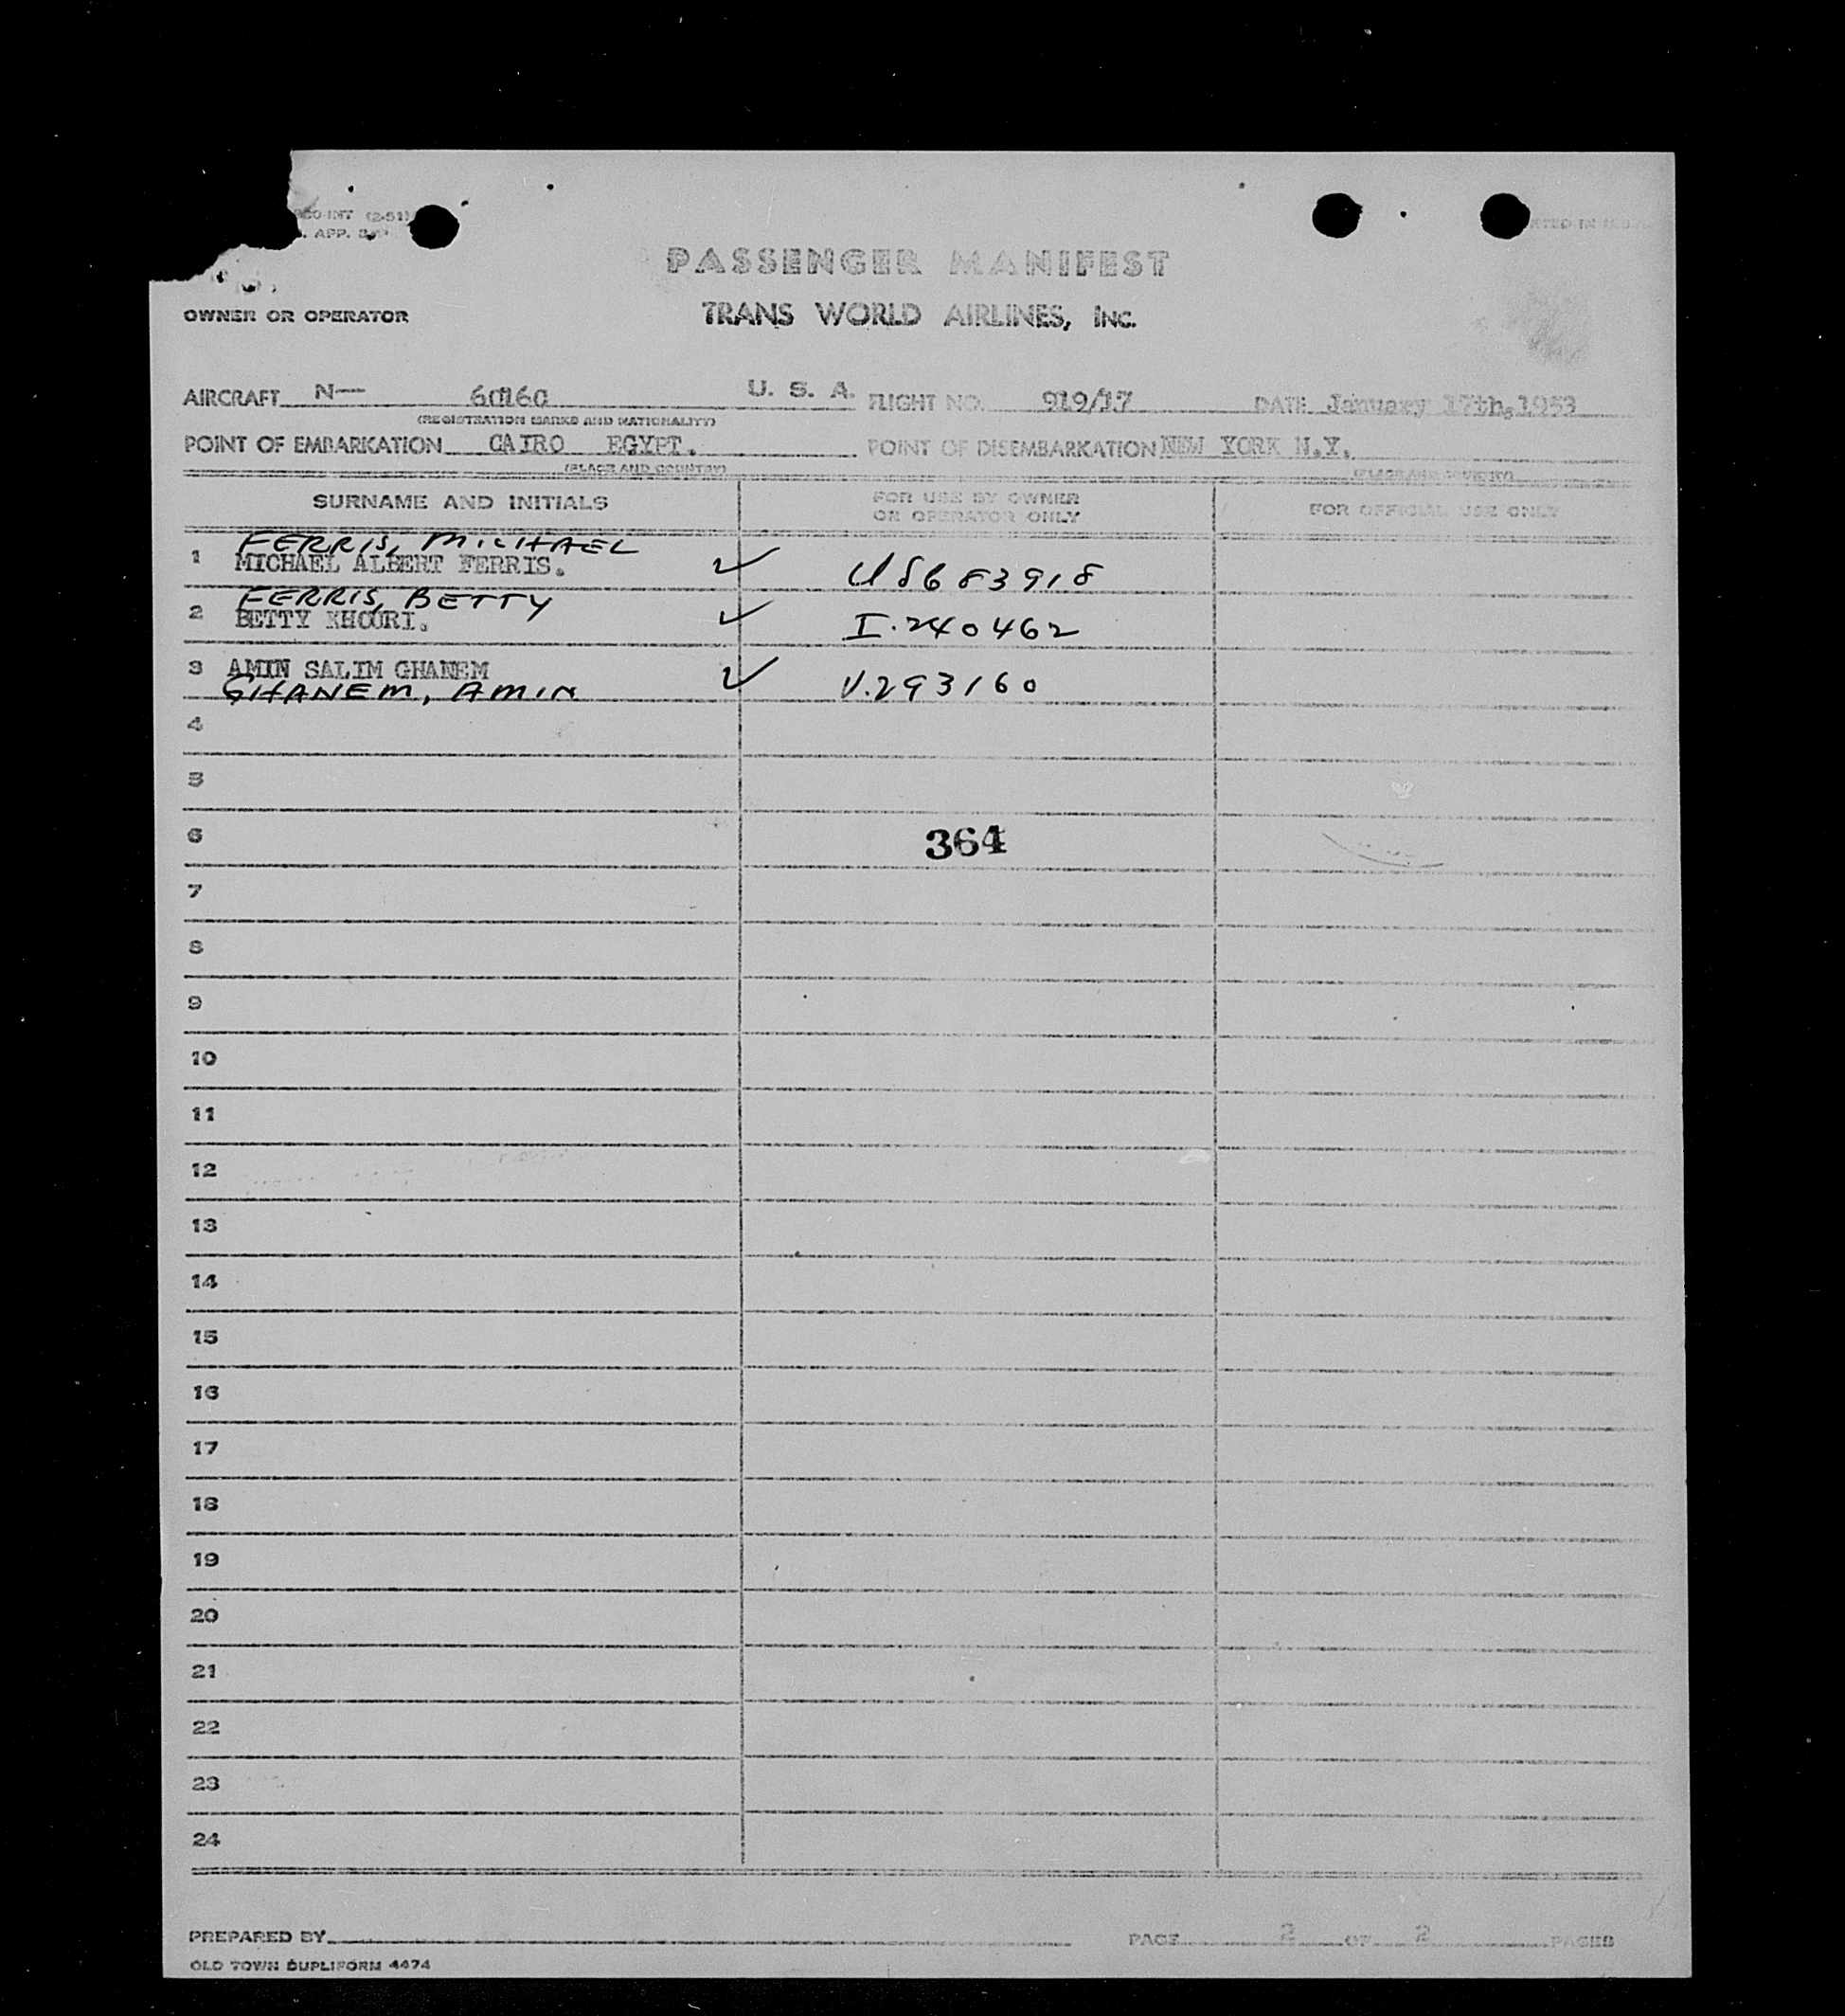 (2-51)
APP.
PASSENGER MANIFEST
OWNER OR OPERATOR TRANS WORLD AIRLINES, INC.
AIRCRAFT N— U. S. A. FLIGHT NO. 919/17 DATE January 17th, 1953
(REGISTRATION MARKS AND NATIONALITY)
POINT OF EMBARKATION CAIRO EGYPT. POINT OF DISEMBARKATION NEW YORK N.Y.
(PLACE AND COUNTRY) (PLACE AND COUNTRY)
SURNAME AND INITIALS FOR USE BY OWNER OR OPERATOR ONLY FOR OFFICIAL USE ONLY
FERRIS, MICHAEL
1 MICHAEL ALBERT FERRIS. ✓ US683918
FERRIS, BETTY
2 BETTY KHOURI. ✓ I.240462
3 AMIN SALIM GHANEM ✓ V.293160
GHANEM, AMIN
4
5
6 364
7
8
9
10
11
12
13
14
15
16
17
18
19
20
21
22
23
24
PREPARED BY PAGE 2 OF 2 PAGES
OLD TOWN DUPLIFORM 4474